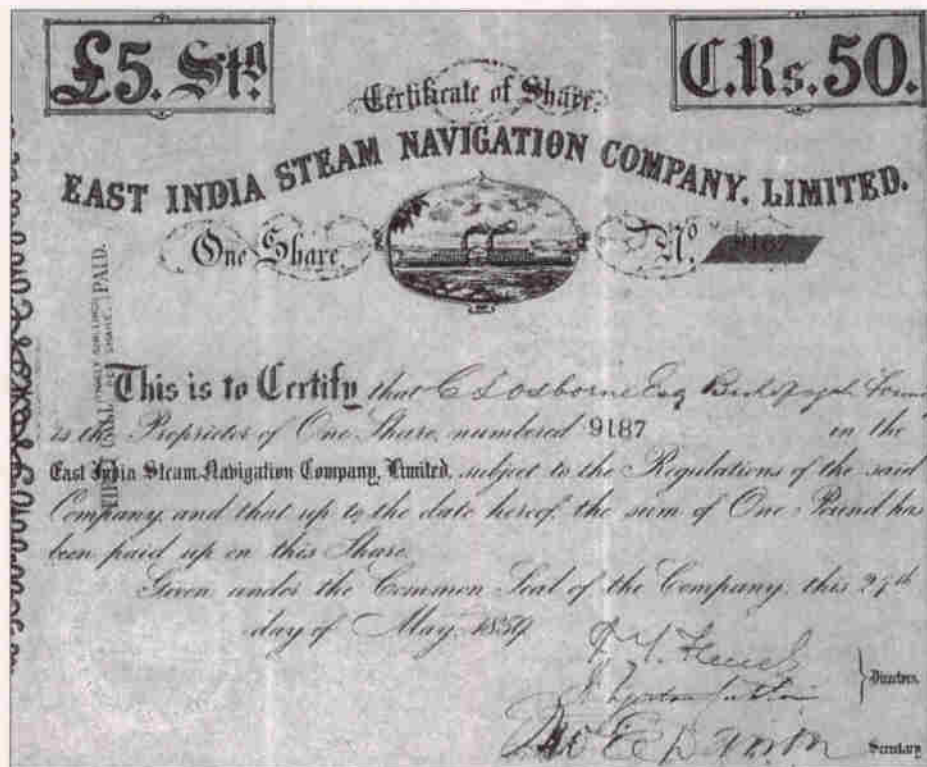 £5. Stg.
C.Rs. 50.
Certificate of Share.
EAST INDIA STEAM NAVIGATION COMPANY, LIMITED.
One Share
No. 9187
PAID.
This is to Certify that C Osborne Esq
is the Proprietor of One Share, numbered 9187 in the
East India Steam Navigation Company, Limited, subject to the Regulations of the said
Company, and that up to the date hereof, the sum of One Pound has
been paid up on this Share.
Given under the Common Seal of the Company, this
day of May, 1859
Directors.
Secretary